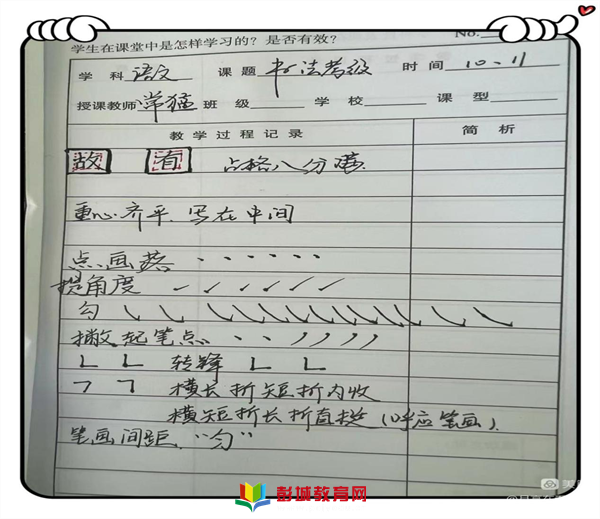 学生在课堂中是怎样学习的？是否有效？ No.
学 科 语文 课 题 书法考级 时 间 10、11
授课教师 常猛 班 级 学 校 课 型
教 学 过 程 记 录 简 析
故 有 占格八分满.
重心齐平. 写在中间
点画落
提角度
勾
撇 起笔点
转锋
横长折短折内收
横短折长折直挺 (呼应笔画).
笔画间距. “匀”
彭城教育网